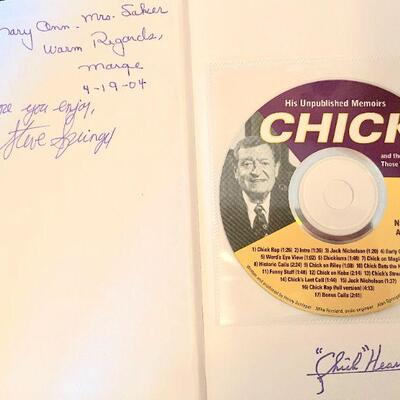 Mary Ann - Mrs. Saker
Warm Regards,
Marge
4-19-04
you enjoy,
Steve Springer
His Unpublished Memoirs
CHICK
and the
Those
1) Chick Rap (1:26) 2) Intro (1:36) 3) Jack Nicholson (1:20) 4) Early
5) Word's Eye View (1:02) 6) Chickisms (1:48) 7) Chick on Magic
8) Historic Calls (2:24) 9) Chick on Riley (1:08) 10) Chick Bats the
11) Funny Stuff (1:48) 12) Chick on Kobe (2:14) 13) Chick's
14) Chick's Last Call (1:44) 15) Jack Nicholson (1:37)
16) Chick Rap (Full version) (4:13)
17) Bonus Calls (2:41)
"Chick" Hear